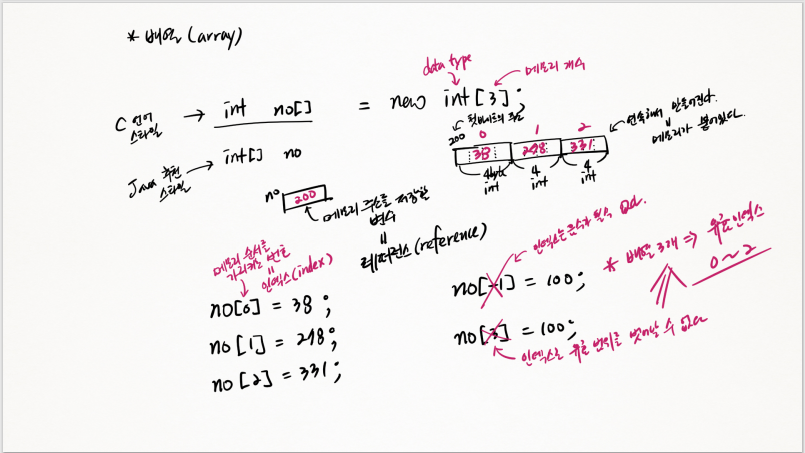 * 배열 (array)
data type
메모리 개수
C 언어
스타일
→ int no[] = new int[3];
Java 추천
스타일
→ int[] no
200
첫 바이트의 주소
0 1 2
38 298 331
4byte
int
4
int
4
int
연속해서 만들어진다.
"
메모리가 붙어있다.
no
200
메모리 주소를 저장할
변수
"
레퍼런스(reference)
메모리 순서를
가리키는 번호
"
인덱스(index)
no[0] = 38;
no[1] = 298;
no[2] = 331;
인덱스는 음수가 불가
no[-1] = 100;
* 배열 3개 ⇒ 유효 인덱스
0 ~ 2
no[3] = 100;
인덱스는 유효 범위를 벗어날 수 없다